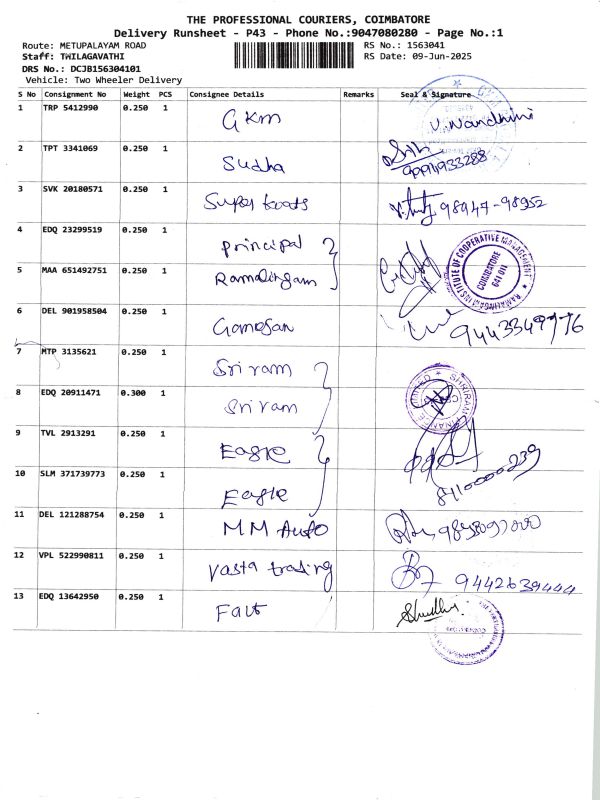 THE PROFESSIONAL COURIERS, COIMBATORE
Delivery Runsheet - P43 - Phone No.:9047080280 - Page No.:1
Route: METUPALAYAM ROAD RS No.: 1563041
Staff: THILAGAVATHI RS Date: 09-Jun-2025
DRS No.: DCJB156304101
Vehicle: Two Wheeler Delivery
S No Consignment No Weight PCS Consignee Details Remarks Seal & Signature
1 TRP 5412990 0.250 1 GKM V. Nandhini
2 TPT 3341069 0.250 1 Sudha 9994933288
3 SVK 20180571 0.250 1 Super foods 98947-98952
4 EDQ 23299519 0.250 1 principal
5 MAA 651492751 0.250 1 Ramalingam
RAMALINGAM INSTITUTE OF COOPERATIVE MANAGEMENT
COIMBATORE
641 011
6 DEL 901958504 0.250 1 Gomesan 9443349776
7 MTP 3135621 0.250 1 Sri ram
8 EDQ 20911471 0.300 1 Sri ram
9 TVL 2913291 0.250 1 Eagle
10 SLM 371739773 0.250 1 Eagle 8110000239
11 DEL 121288754 0.250 1 MM Auto
12 VPL 522990811 0.250 1 Vasta trading 9442639444
13 EDQ 13642950 0.250 1